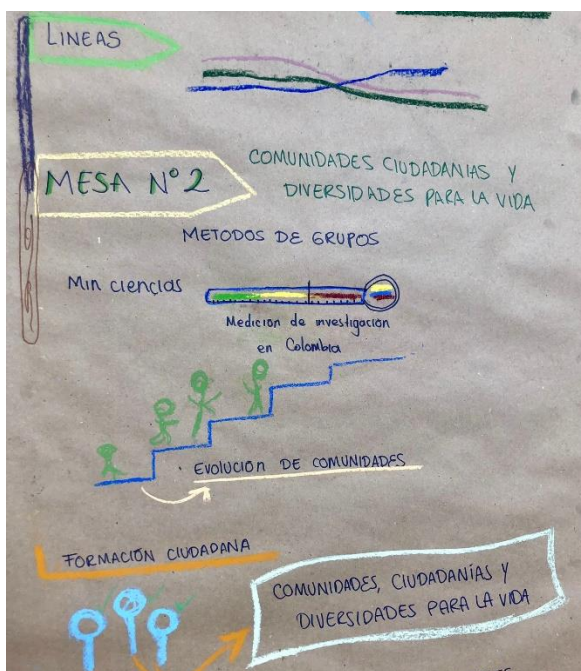 LINEAS
MESA Nº2
COMUNIDADES CIUDADANIAS Y
DIVERSIDADES PARA LA VIDA
METODOS DE GRUPOS
Min ciencias
Medicion de investigacion
en Colombia
EVOLUCION DE COMUNIDADES
FORMACIÓN CIUDADANA
COMUNIDADES, CIUDADANÍAS Y
DIVERSIDADES PARA LA VIDA